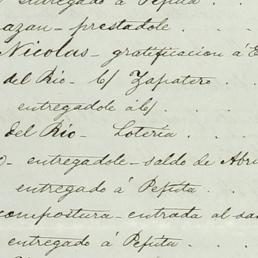 entregado á Pepita . .
azan - prestadole . . .
Nicolas - gratificacion á E
del Rio - c/ Zapatero . .
entregadole á c/ . . .
del Rio - Loteria . . .
)- entregadole - saldo de Abri
entregado á Pepita . . .
compostura - entrada al sa
entregado á Pepita . . .